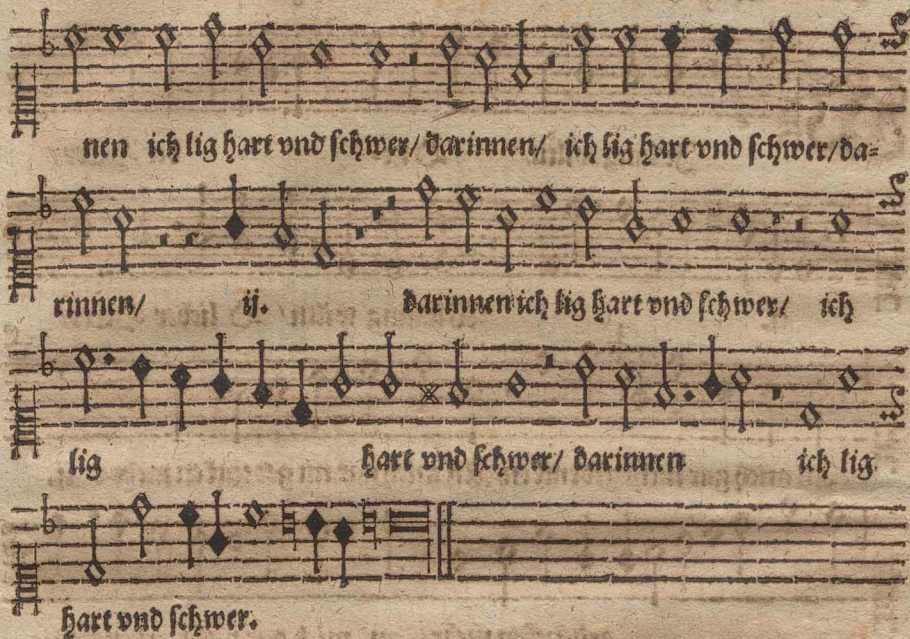 nen ich lig hart vnd schwer/ darinnen/ ich lig hart vnd schwer/ da-
rinnen/ ij. darinnen ich lig hart vnd schwer/ ich
lig hart vnd schwer/ darinnen ich lig
hart vnd schwer.